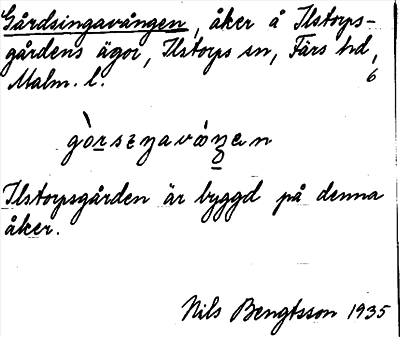 Gårdsingavången, åker å Ilstorps-
gårdens ägor, Ilstorps sn, Färs hd,
Malm. l. 6
Ilstorpsgården är byggd på denna
åker.
Nils Bengtsson 1935